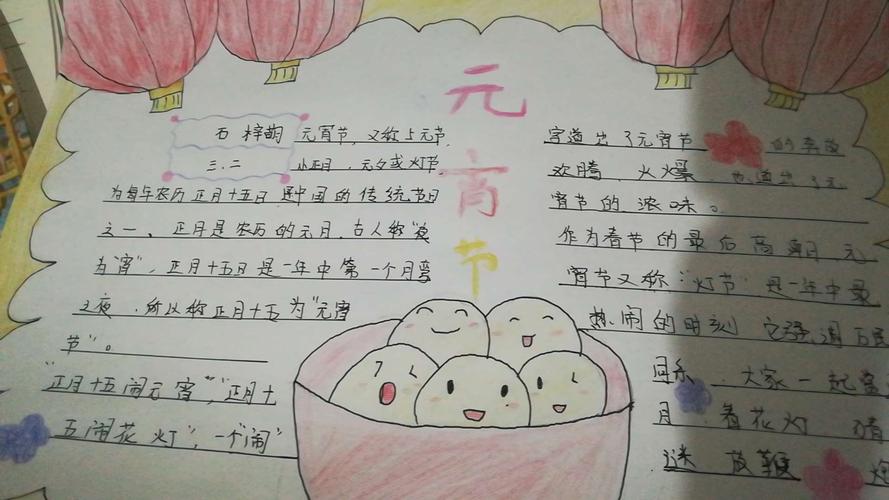 元宵节
石梓萌
三.二
元宵节，又称上元节，
小正月、元夕或灯节，
为每年农历正月十五日，是中国的传统节日
之一、正月是农历的元月，古人称"夜
为"宵"，正月十五日是一年中第一个月圆
之夜，所以称正月十五为"元宵
节"。
"正月十五闹元宵"，"正月十
五闹花灯"，一个"闹"
字道出了元宵节
欢腾、火爆 也道出了元
宵节的浓味。
作为春节的最后高潮，元
宵节又称："灯节"是一年中最
热闹的时刻 它强调
同乐 大家一起
月 看花灯 猜
谜 放鞭